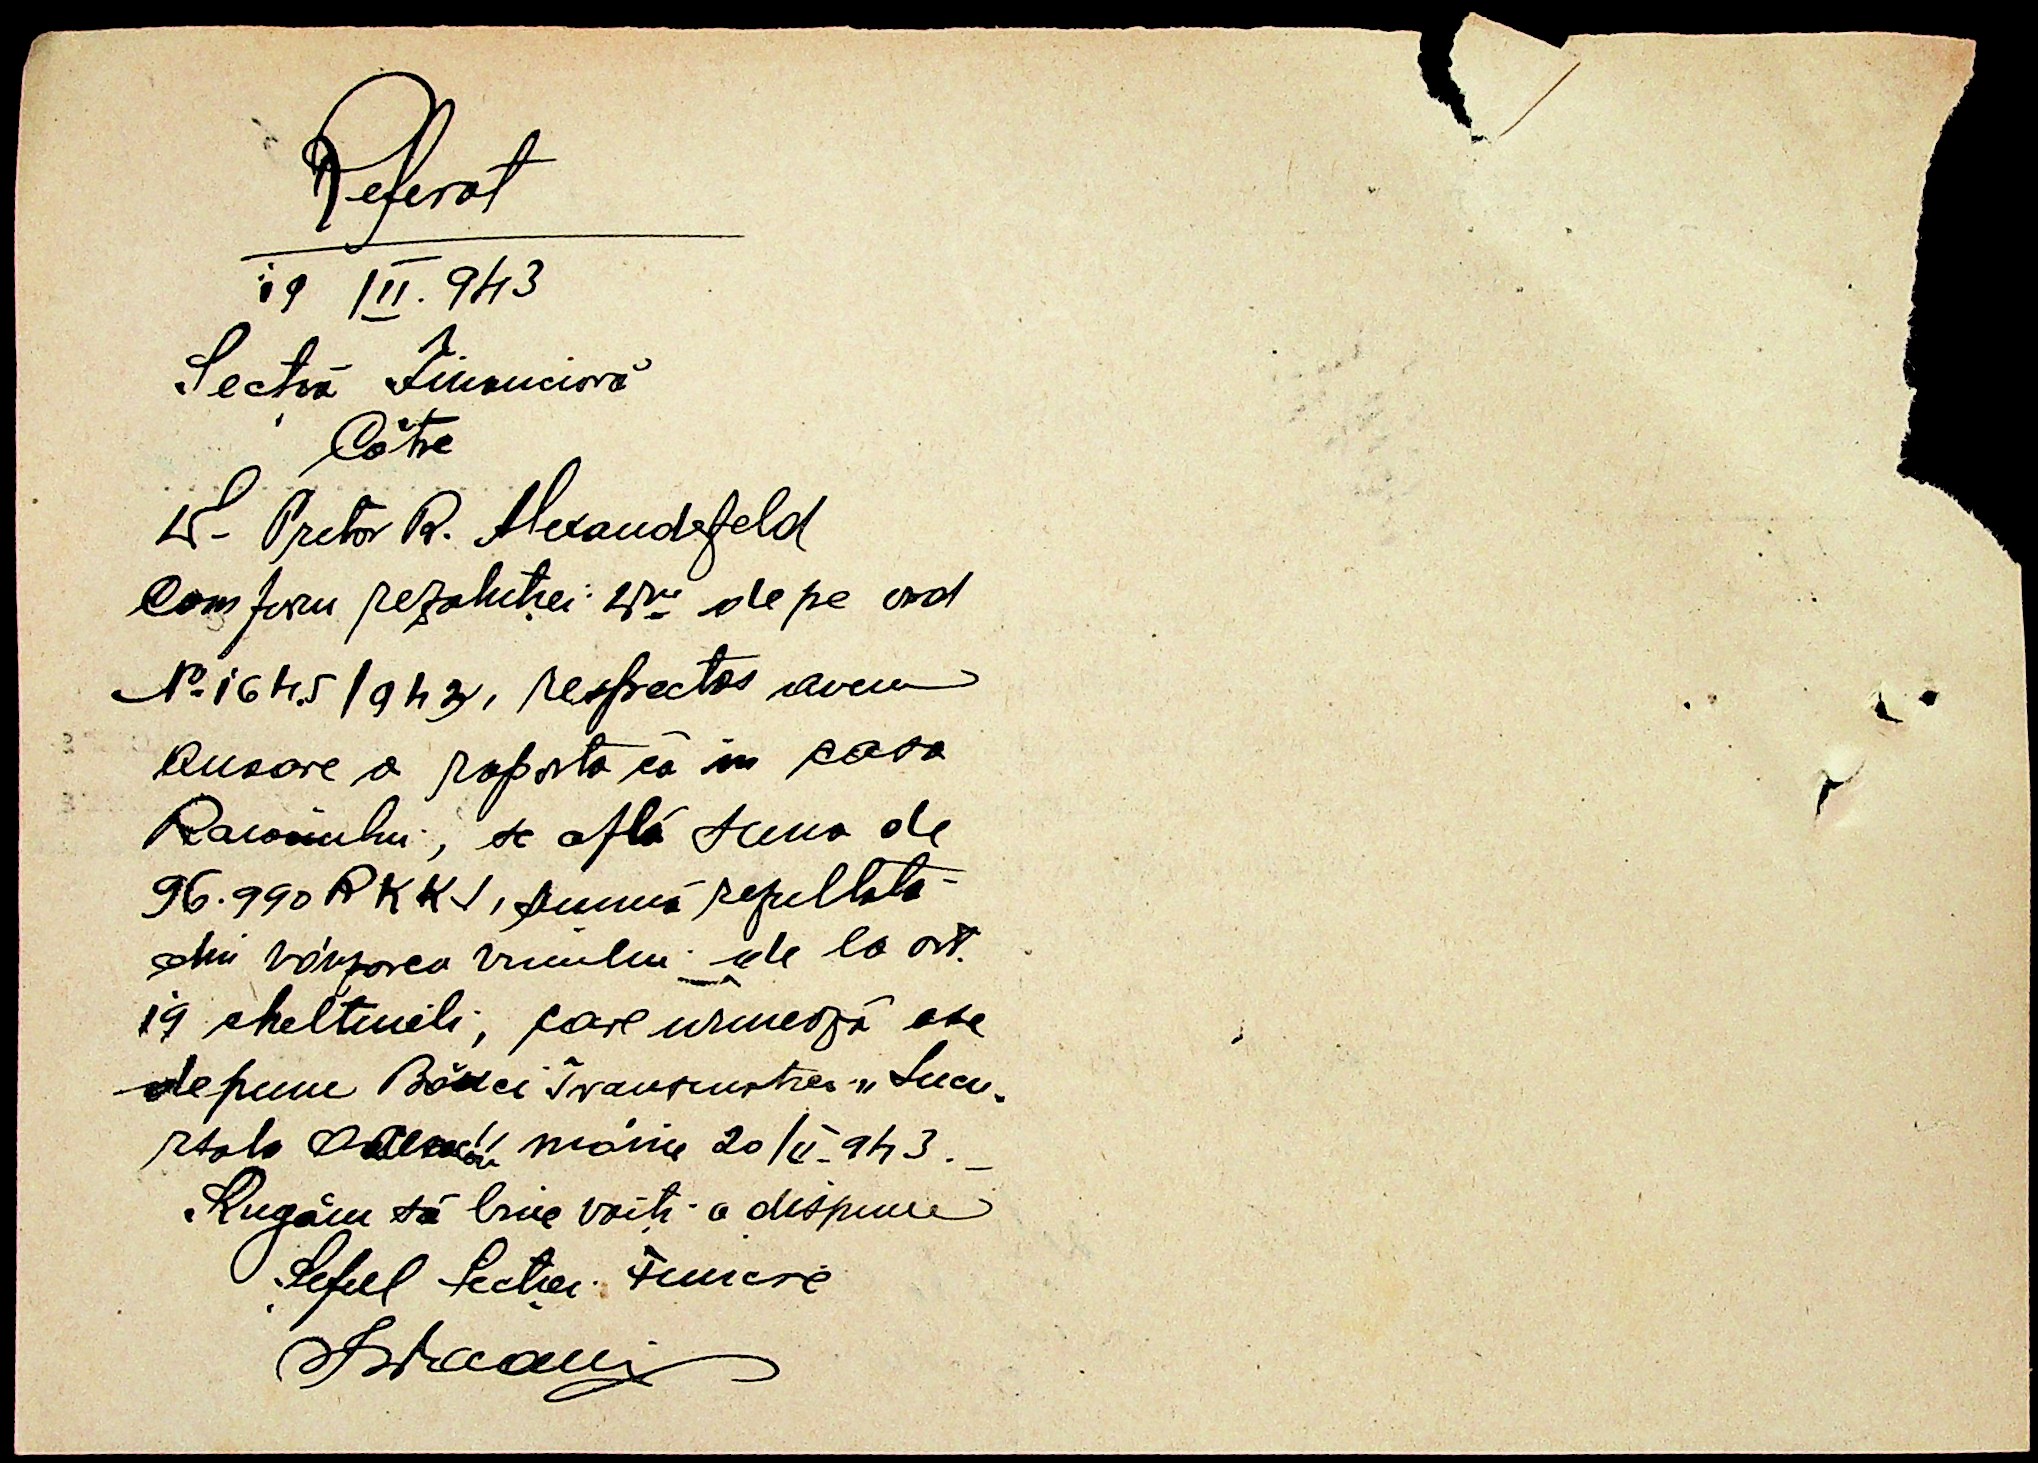 Referat
19 /II. 943
Secția Financiară
Către
Pretor R. Alexandefeld
Comform rezoluției Dvs de pe ord
No 1645/943, respectos avem
onoare a raporta că în casa
Raionului, se află suma de
96.990 RKKS, sumă rezultată
din vânzarea vinului de la art.
19 cheltueli, care urmează a se
depune Băncei Transnistriei „Sucu-
rsala mâine 20/II-943.-
Rugăm să bine voiți a dispune
Șeful Secției Finciare